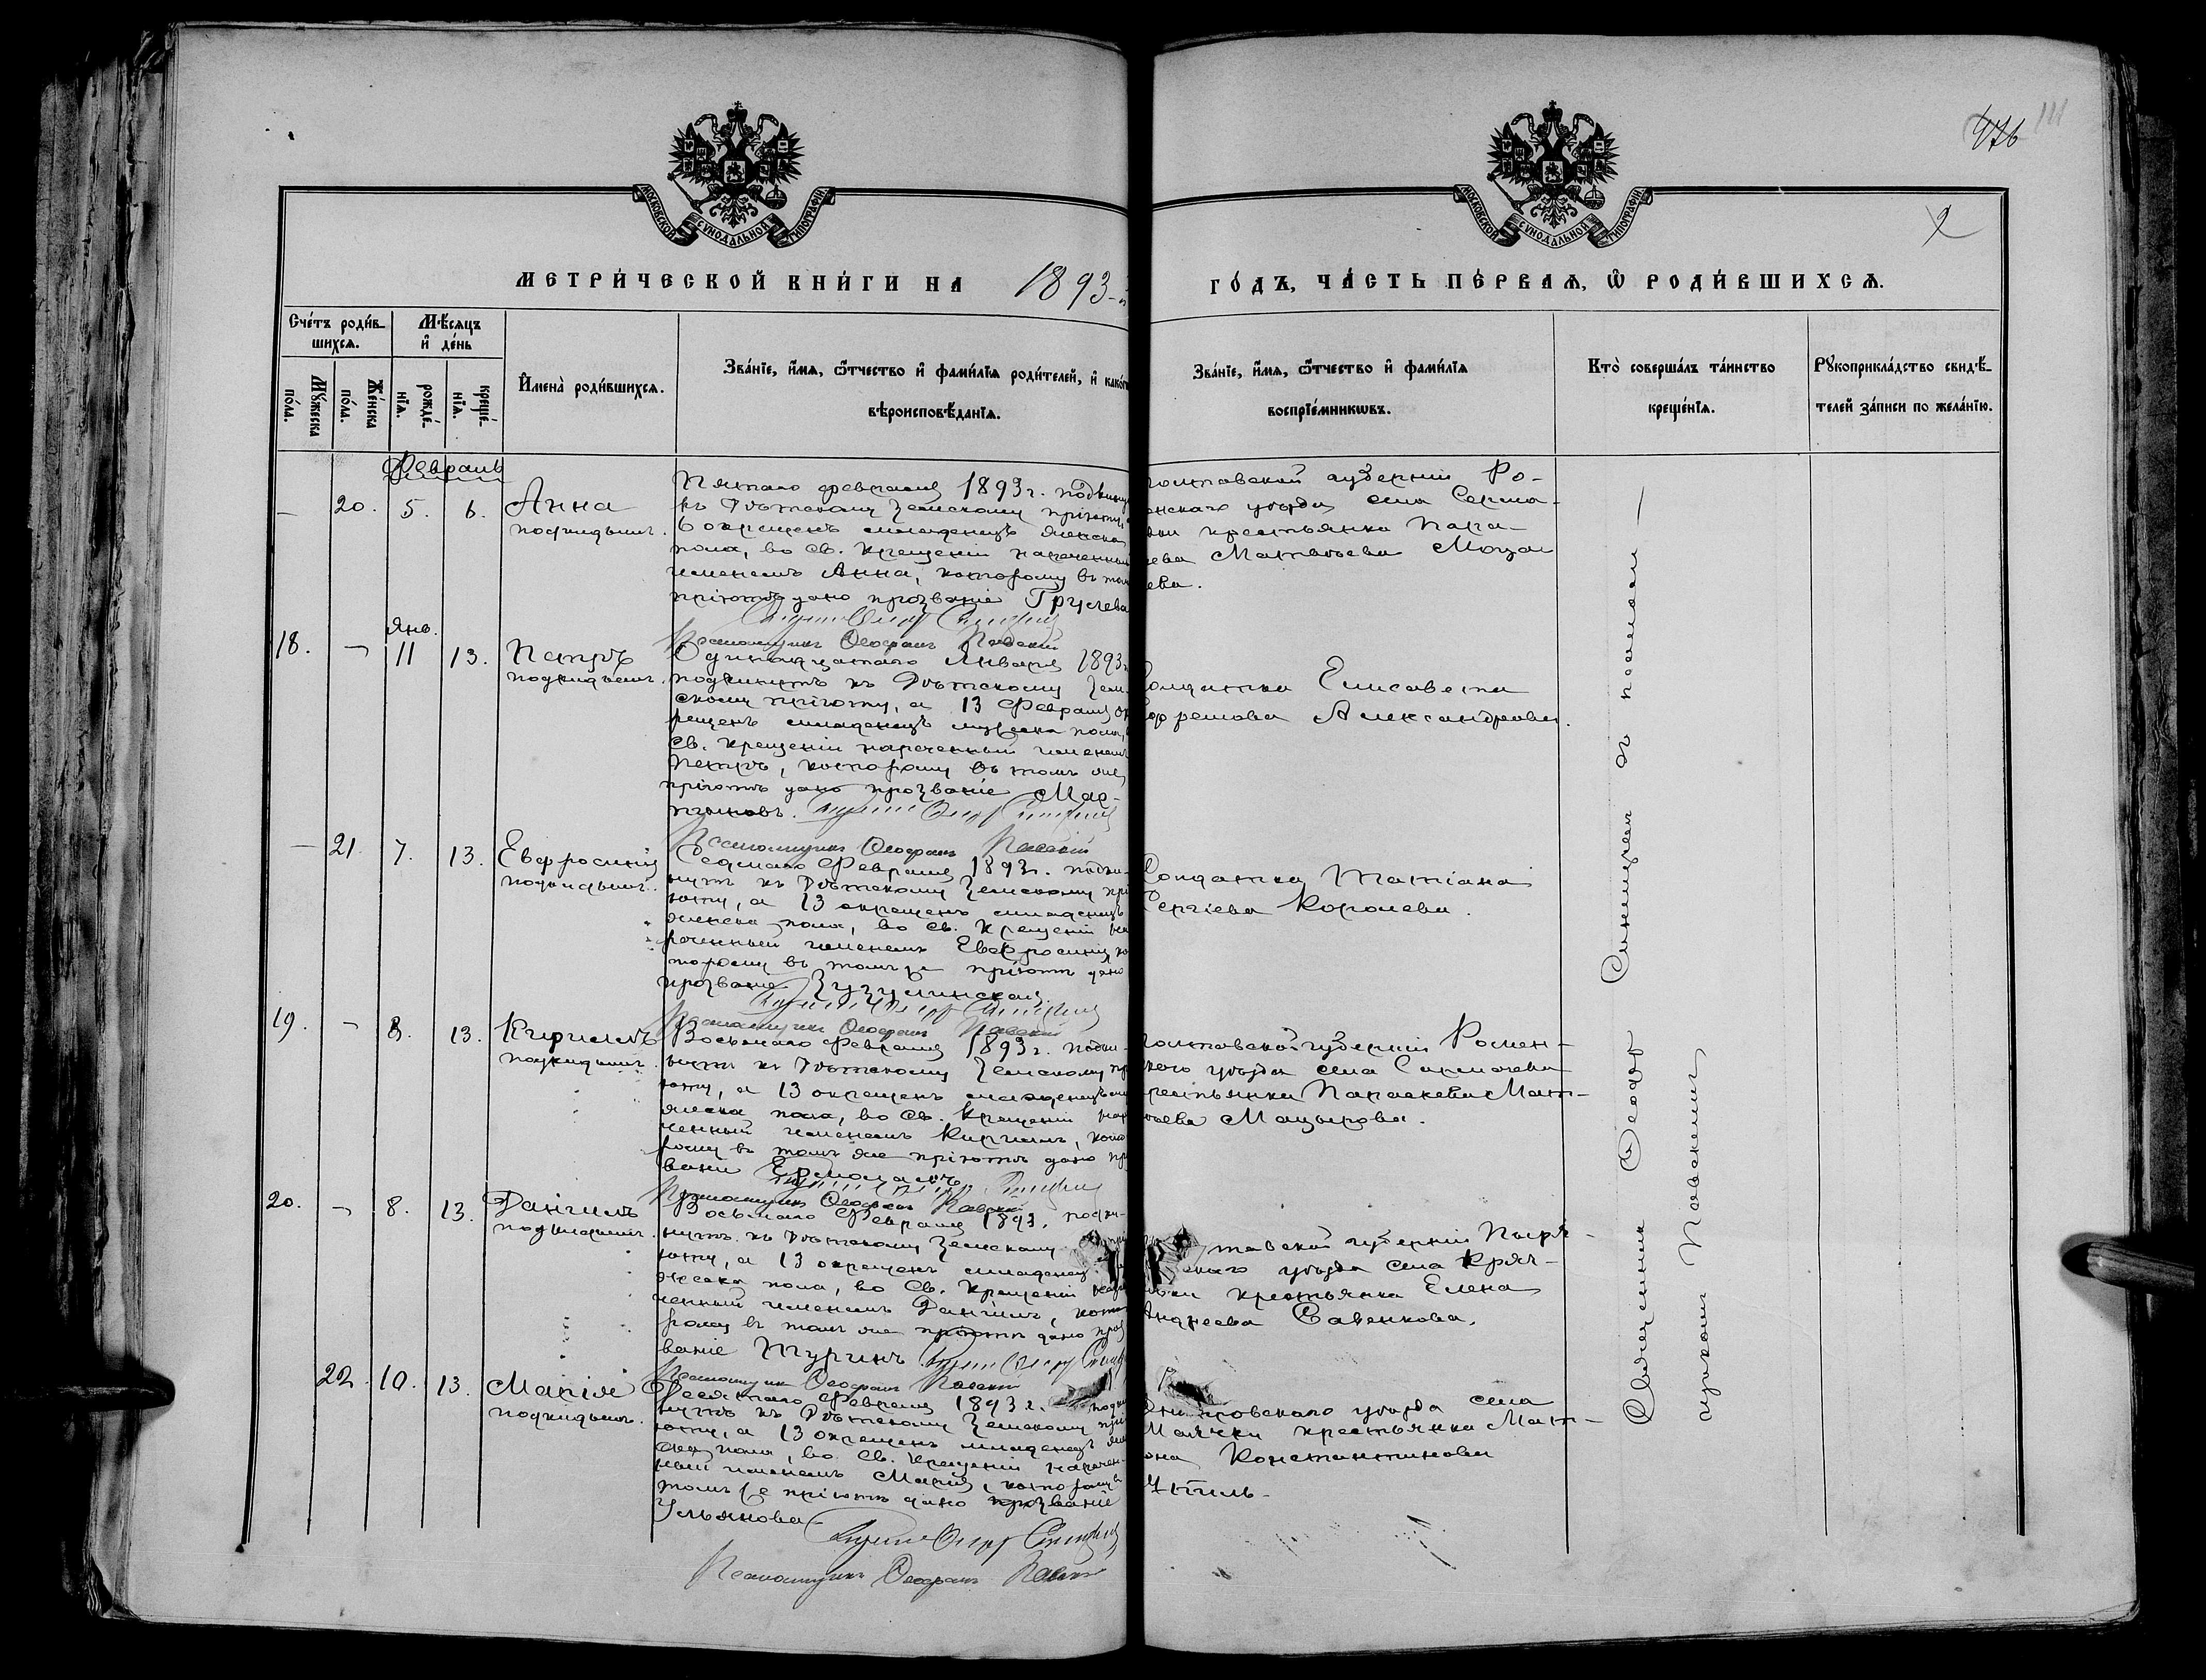 476
111
2
МОСКОВСКОЙ СѴНОДАЛЬНОЙ ТИПОГРАФІИ
МОСКОВСКОЙ СѴНОДАЛЬНОЙ ТИПОГРАФІИ
МЕТРИ́ЧЕСКОЙ КНИ́ГИ НА 1893-й
ГО́ДЪ, ЧА́СТЬ ПЕ́РВАѦ, Ѿ РОДИ́ВШИХСѦ.
Сче́тъ роди́в-
шихсѧ.
Мѣ́сѧцъ
и҆ де́нь
Мꙋ́жеска
по́ла.
Же́нска
по́ла.
рожде́-
нїѧ.
креще́-
нїѧ.
И҆мена̀ роди́вшихсѧ.
Зва́нїе, и҆́мѧ, ѻ҆́тчество и҆ фами́лїѧ роди́телей, и҆ како́гѡ
вѣроисповѣ́данїѧ.
Зва́нїе, и҆́мѧ, ѻ҆́тчество и҆ фами́лїѧ
воспрїе́мникѡвъ.
Кто̀ соверша́лъ та́инство
креще́нїѧ.
Рꙋкоприкла́дство свидѣ́-
телей за́писи по жела́нїю.
Февраль
— 20. 5. 6. Анна
подкидышъ.
Пятаго февраля 1893 г. подкину
къ Дѣтскому Земскому пріюту,
6 окрещенъ младенецъ женска
пола, во св. Крещеніи нареченный
именемъ Анна, которому въ том
пріютѣ дано прозваніе Грусева
Псаломщикъ Ѳеофанъ Павскій
полтавской губерніи Ро-
енскаго уѣзда села Серма-
вки крестьянка Пара-
ева Матвѣева Моца
ева.
Янв.
18. — 11 13. Петръ
подкидышъ.
Одинадцатаго Января 1893
подкинутъ къ Дѣтскому Зем-
скому пріюту, а 13 Февраля ок
рещенъ младенецъ мужеска пола,
св. крещеніи нареченный именемъ
Петръ, которому въ томъ же
пріютѣ дано прозваніе Мас-
Псаломщикъ Ѳеофанъ Павскій
Солдатка Елисавета
Ефремова Александрова.
— 21. 7. 13. Евфросинія
подкидышъ.
Седмаго Февраля 1893 г. подки-
нутъ къ Дѣтскому Земскому прі
юту, а 13 окрещенъ младенецъ
женска пола, во св. Крещеніи на
реченный именемъ Евфросинія, ко
торому въ томъ же пріютѣ дано
прозваніе Зузулинская.
Псаломщикъ Ѳеофанъ Павскій
Солдатка Татіана
Сергіева Королева.
19. — 8. 13. Кириллъ
подкидышъ.
Восьмаго Февраля 1893 г. подки-
нутъ къ Дѣтскому Земскому прі
юту, а 13 окрещенъ младенецъ му
жеска пола, во св. Крещеніи наре
ченный именемъ Кириллъ, кото
рому въ томъ же пріютѣ дано про
Псаломщикъ Ѳеофанъ Павскій
полтавской губерніи Ромен-
скаго уѣзда села
крестьянка Параскева Мат-
вѣева Мацырова.
20. — 8. 13. Даніилъ
подкидышъ.
Восьмаго Февраля 1893. подки-
нутъ къ Дѣтскому Земскому прі
юту, а 13 окрещенъ младенецъ му
жеска пола, во Св. Крещеніи наре
ченный именемъ Даніилъ, кото
рому въ томъ же пріютѣ дано проз
ваніе Тургинъ.
Псаломщикъ Ѳеофанъ Павскій
тавской губерніи Пыря-
скаго уѣзда села Кряч-
ковки крестьянка Елена
Андреева Савенкова.
22. 10. 13. Марія
подкидышъ.
Десятаго Февраля 1893 г. подки
нутъ къ Дѣтскому Земскому прі
юту, а 13 окрещенъ младенецъ жен
ска пола, во св. Крещеніи наречен-
ный именемъ Марія, которому в
томъ же пріютѣ дано прозваніе
Ульянова.
Псаломщикъ Ѳеофанъ Павскій
Днѣпровскаго уѣзда села
Маячки крестьянка Мат-
рона Константинова
Священник Ѳеодор Синицкій и псалом —
щиком Павскимъ